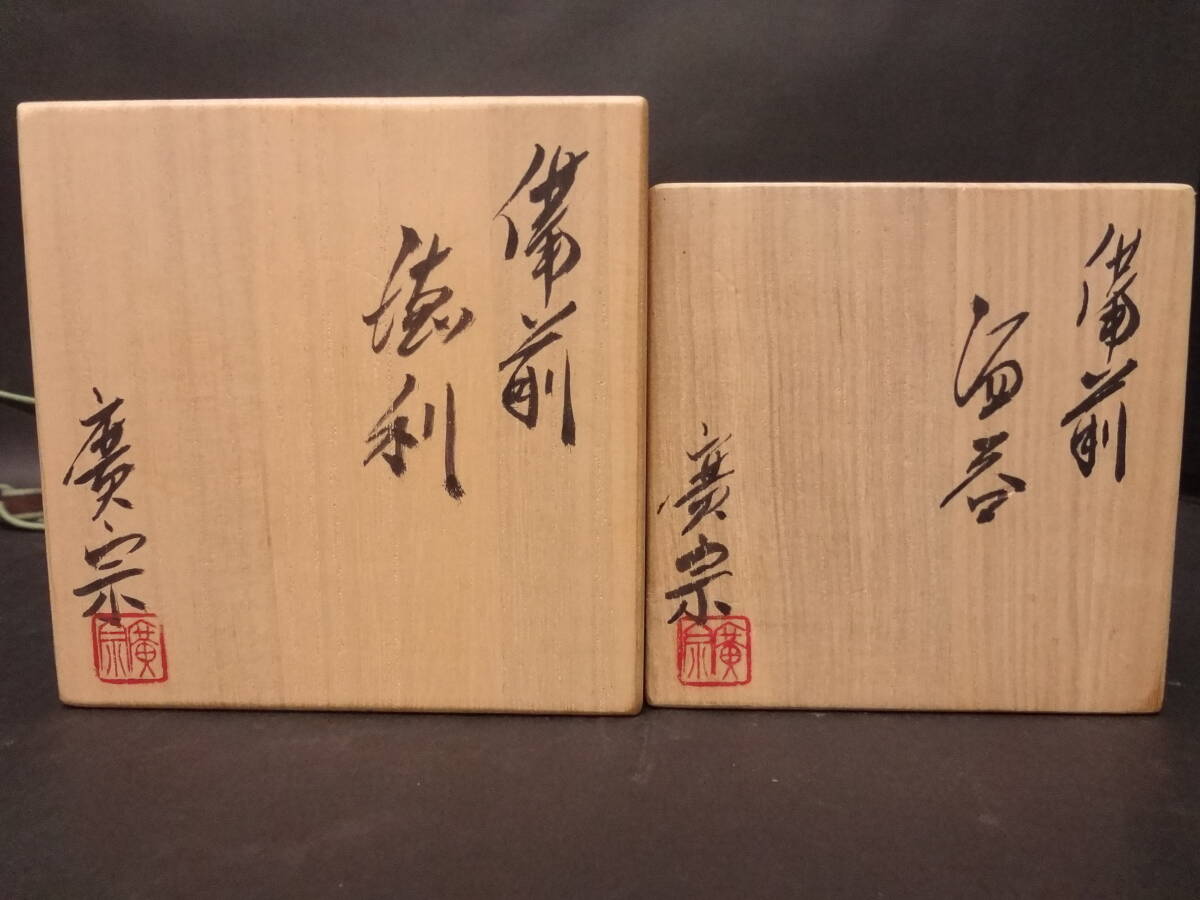 備前
徳利
廣宗
廣宗
備前
酒呑
廣宗
廣宗